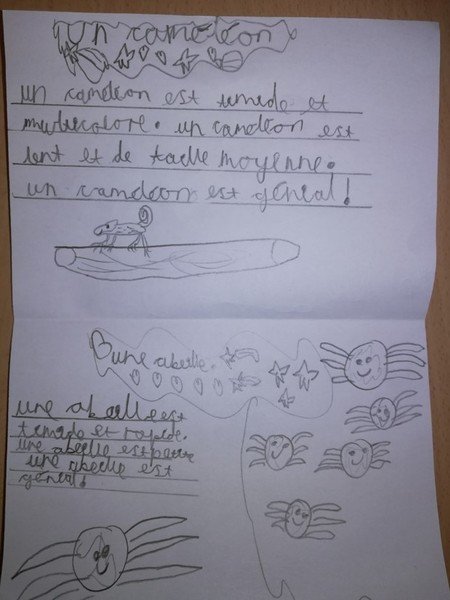 un cameleon
un cameleon est timide et
multicolore. un cameleon est
lent et de taille moyenne.
un cameleon est génial!
une abeille.
une abeille est
timide et rapide.
une abeille est petite
une abeille est
génial!